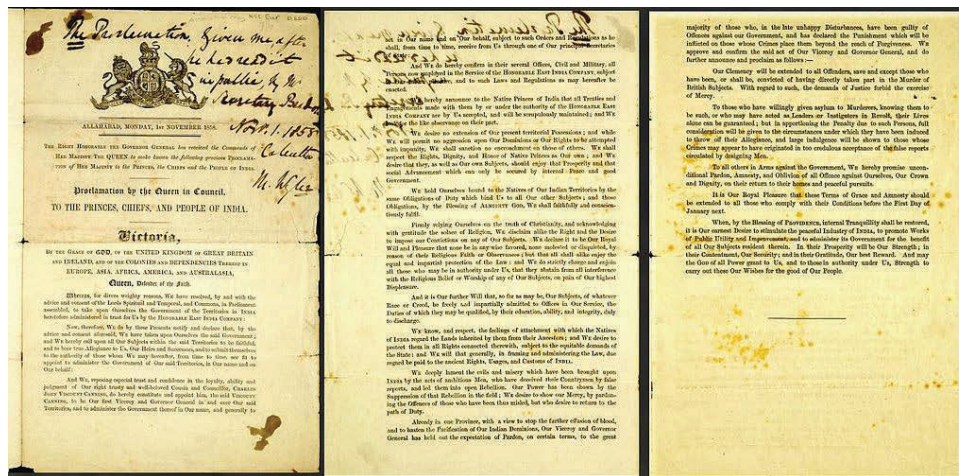 The Proclamation. Given me after
he had read it
in public, by Mr
Secretary
Nov. 1. 1858
Calcutta
ALLAHABAD, MONDAY, 1ST NOVEMBER 1858.
THE RIGHT HONORABLE THE GOVERNOR GENERAL has received the Commands of
HER MAJESTY THE QUEEN to make known the following gracious PROCLAMA-
TION of HER MAJESTY to the PRINCES, the CHIEFS and the PEOPLE OF INDIA.
Proclamation by the Queen in Council,
TO THE PRINCES, CHIEFS, AND PEOPLE OF INDIA.
Victoria,
BY THE GRACE OF GOD, OF THE UNITED KINGDOM OF GREAT BRITAIN
AND IRELAND, AND OF THE COLONIES AND DEPENDENCIES THEREOF IN
EUROPE, ASIA, AFRICA, AMERICA, AND AUSTRALASIA,
Queen, Defender of the Faith.
WHEREAS, for divers weighty reasons, We have resolved, by and with the
advice and consent of the Lords Spiritual and Temporal, and Commons, in Parliament
assembled, to take upon Ourselves the Government of the Territories in INDIA
heretofore administered in trust for Us by the HONORABLE EAST INDIA COMPANY:
Now, therefore, We do by these Presents notify and declare that, by the
advice and consent aforesaid, We have taken upon Ourselves the said Government;
and We hereby call upon all Our Subjects within the said Territories to be faithful,
and to bear true Allegiance to Us, Our Heirs and Successors, and to submit themselves
to the authority of those whom We may hereafter, from time to time, see fit to
appoint to administer the Government of Our said Territories, in Our name and on
Our behalf:
And We, reposing especial trust and confidence in the loyalty, ability and
judgment of Our right trusty and well-beloved Cousin and Councillor, CHARLES
JOHN VISCOUNT CANNING, do hereby constitute and appoint him, the said VISCOUNT
CANNING, to be Our first Viceroy and Governor General in and over Our said
Territories, and to administer the Government thereof in Our name, and generally to
act in Our name and on Our behalf, subject to such Orders and Regulations as he
shall, from time to time, receive from Us through one of Our principal Secretaries
of State:
And We do hereby confirm in their several Offices, Civil and Military, all
Persons now employed in the Service of the HONORABLE EAST INDIA COMPANY, subject
to Our future pleasure, and to such Laws and Regulations as may hereafter be
enacted.
We hereby announce to the Native Princes of India that all Treaties and
Engagements made with them by or under the authority of the HONORABLE EAST
INDIA COMPANY are by Us accepted, and will be scrupulously maintained; and We
look for the like observance on their part.
We desire no extension of Our present territorial Possessions; and while
We will permit no aggression upon Our Dominions or Our Rights to be attempted
with impunity, We shall sanction no encroachment on those of others. We shall
respect the Rights, Dignity, and Honor of Native Princes as Our own; and We
desire that they, as well as Our own Subjects, should enjoy that Prosperity and that
social Advancement which can only be secured by internal Peace and good
Government.
We hold Ourselves bound to the Natives of Our Indian Territories by the
same Obligations of Duty which bind Us to all Our other Subjects; and those
Obligations, by the Blessing of ALMIGHTY GOD, We shall faithfully and conscien-
tiously fulfil.
Firmly relying Ourselves on the truth of Christianity, and acknowledging
with gratitude the solace of Religion, We disclaim alike the Right and the Desire
to impose our Convictions on any of Our Subjects. We declare it to be Our Royal
Will and Pleasure that none be in any wise favored, none molested or disquieted, by
reason of their Religious Faith or Observances; but that all shall alike enjoy the
equal and impartial protection of the Law: and We do strictly charge and enjoin
all those who may be in authority under Us, that they abstain from all interference
with the Religious Belief or Worship of any of Our Subjects, on pain of Our highest
Displeasure.
And it is Our further Will that, so far as may be, Our Subjects, of whatever
Race or Creed, be freely and impartially admitted to Offices in Our Service, the
Duties of which they may be qualified, by their education, ability, and integrity, duly
to discharge.
We know, and respect, the feelings of attachment with which the Natives
of INDIA regard the Lands inherited by them from their Ancestors; and We desire to
protect them in all Rights connected therewith, subject to the equitable demands of
the State: and We will that generally, in framing and administering the Law, due
regard be paid to the ancient Rights, Usages, and Customs of INDIA.
We deeply lament the evils and misery which have been brought upon
INDIA by the acts of ambitious Men, who have deceived their Countrymen by false
reports, and led them into open Rebellion. Our Power has been shewn by the
Suppression of that Rebellion in the field; We desire to show our Mercy, by pardon-
ing the Offences of those who have been thus misled, but who desire to return to the
path of Duty.
Already in one Province, with a view to stop the further effusion of blood,
and to hasten the Pacification of Our Indian Dominions, Our Viceroy and Governor
General has held out the expectation of Pardon, on certain terms, to the great
majority of those who, in the late unhappy Disturbances, have been guilty of
Offences against our Government, and has declared the Punishment which will be
inflicted on those whose Crimes place them beyond the reach of Forgiveness. We
approve and confirm the said act of Our Viceroy and Governor General, and do
further announce and proclaim as follows:—
Our Clemency will be extended to all Offenders, save and except those who
have been, or shall be, convicted of having directly taken part in the Murder of
British Subjects. With regard to such, the demands of Justice forbid the exercise
of Mercy.
To those who have willingly given asylum to Murderers, knowing them to
be such, or who may have acted as Leaders or Instigators in Revolt, their Lives
alone can be guaranteed; but in apportioning the Penalty due to such Persons, full
consideration will be given to the circumstances under which they have been induced
to throw off their Allegiance, and large indulgence will be shown to those whose
Crimes may appear to have originated in too credulous acceptance of the false reports
circulated by designing Men.
To all others in Arms against the Government, We hereby promise uncon-
ditional Pardon, Amnesty, and Oblivion of all Offence against Ourselves, Our Crown
and Dignity, on their return to their homes and peaceful pursuits.
It is Our Royal Pleasure that these Terms of Grace and Amnesty should
be extended to all those who comply with their Conditions before the First Day of
January next.
When, by the Blessing of PROVIDENCE, internal Tranquillity shall be restored,
it is Our earnest Desire to stimulate the peaceful Industry of INDIA, to promote Works
of Public Utility and Improvement, and to administer its Government for the benefit
of all Our Subjects resident therein. In their Prosperity will be Our Strength; in
their Contentment, Our Security; and in their Gratitude, Our best Reward. And may
the God of all Power grant to Us, and to those in authority under Us, Strength to
carry out these Our Wishes for the good of Our People.